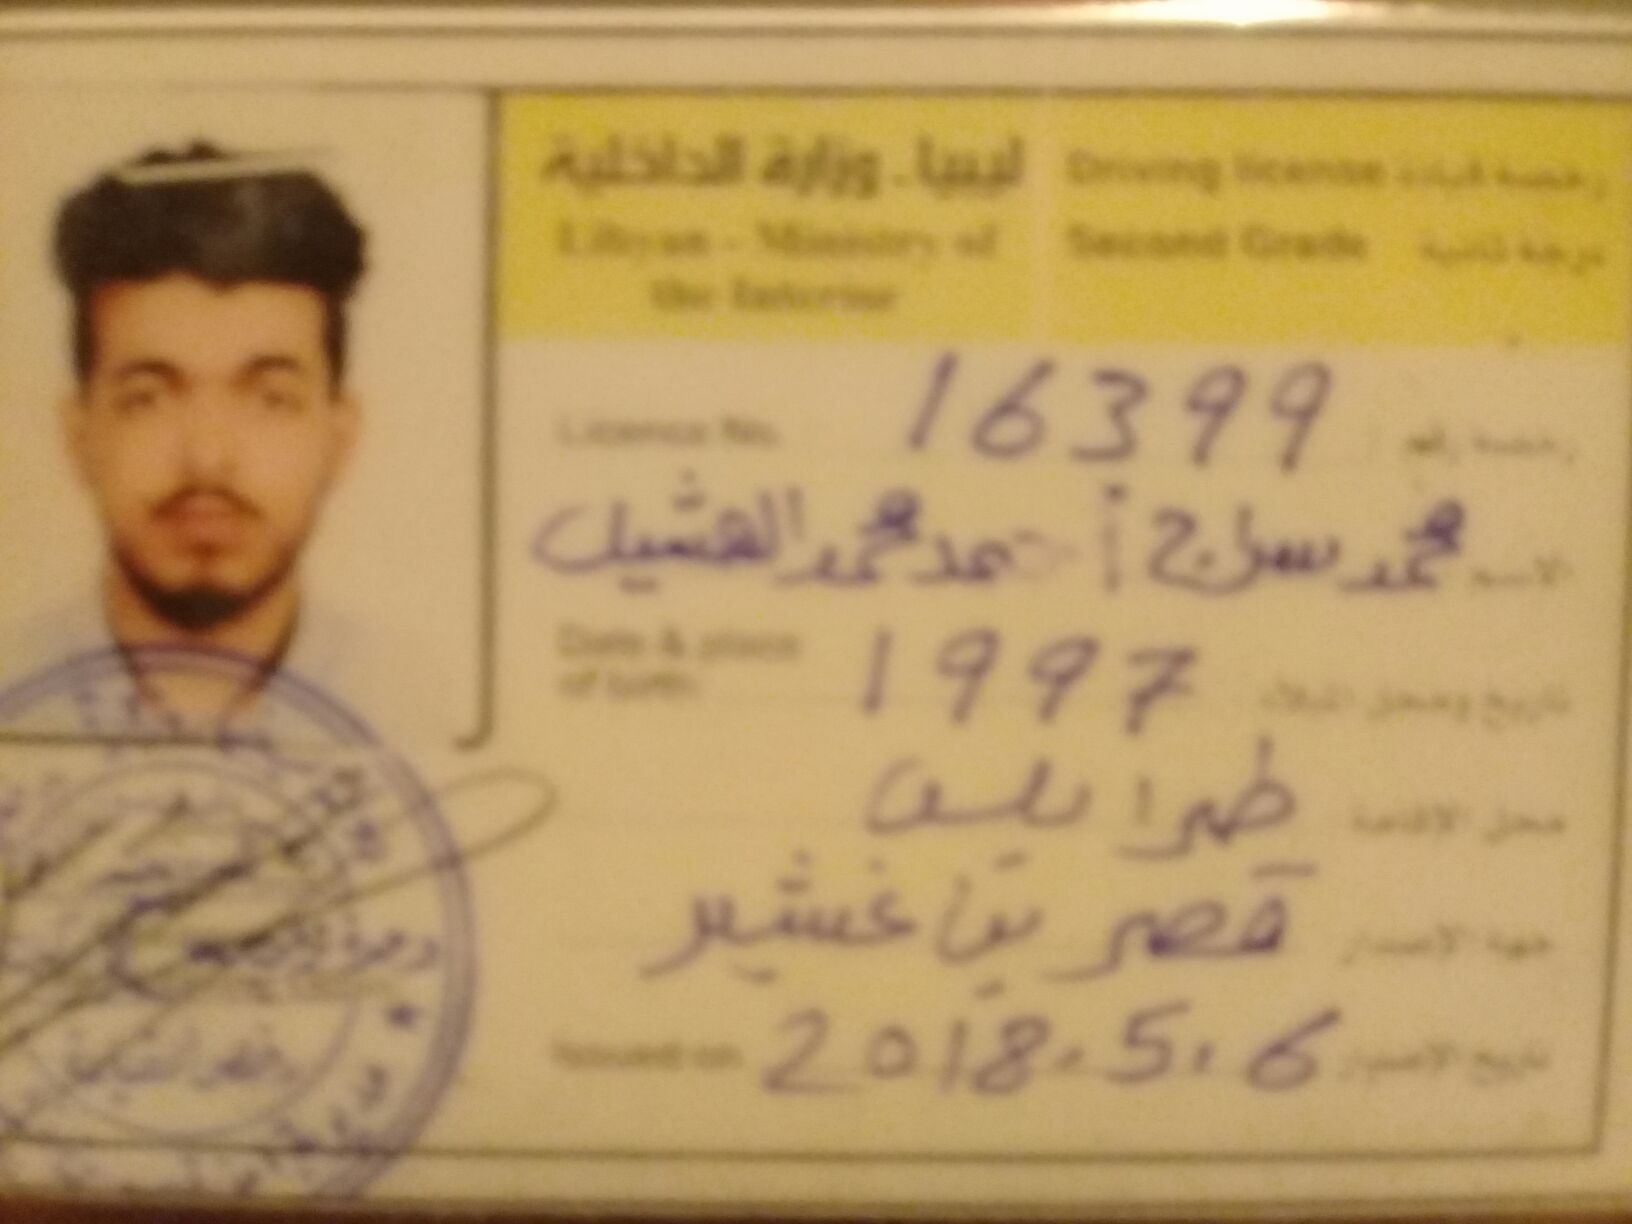 ليبيا - وزارة الداخلية
Libyan - Ministry of
the Interior
Driving license رخصة قيادة
Second Grade درجة ثانية
Licence No. 16399 رخصة رقم
الاسم محمد سراج أحمد محمد الهشيل
Date & place of birth 1997 تاريخ ومحل الميلاد
محل الإقامة طرابلس
جهة الإصدار قصر بن غشير
Issued on 2018.5.6 تاريخ الإصدار